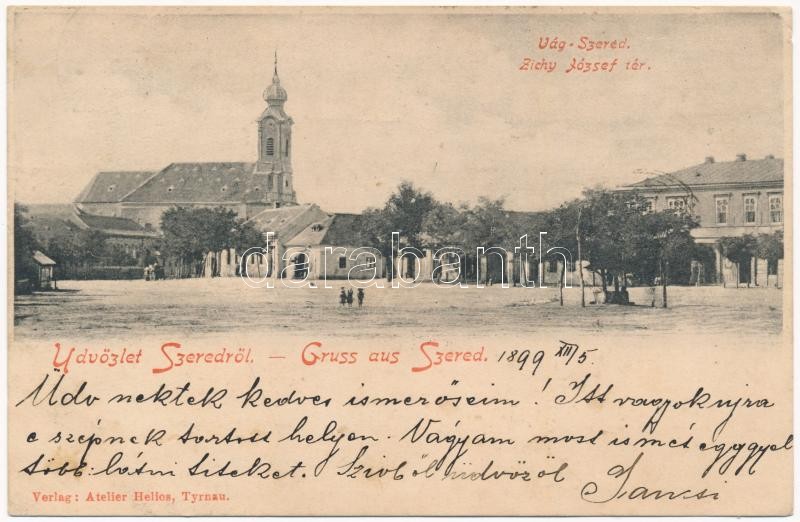 Vág-Szered.
Zichy József tér.
darabanth
Udvözlet Szeredröl. – Gruss aus Szered. 1899 XII/5.
Üdv nektek kedves ismerőseim! Itt vagyok ujra
e szépnek tartott helyen. Vágyam most ismét egggyel
több látni titeket. Szivből üdvözöl Jancsi
Verlag: Atelier Helios, Tyrnau.